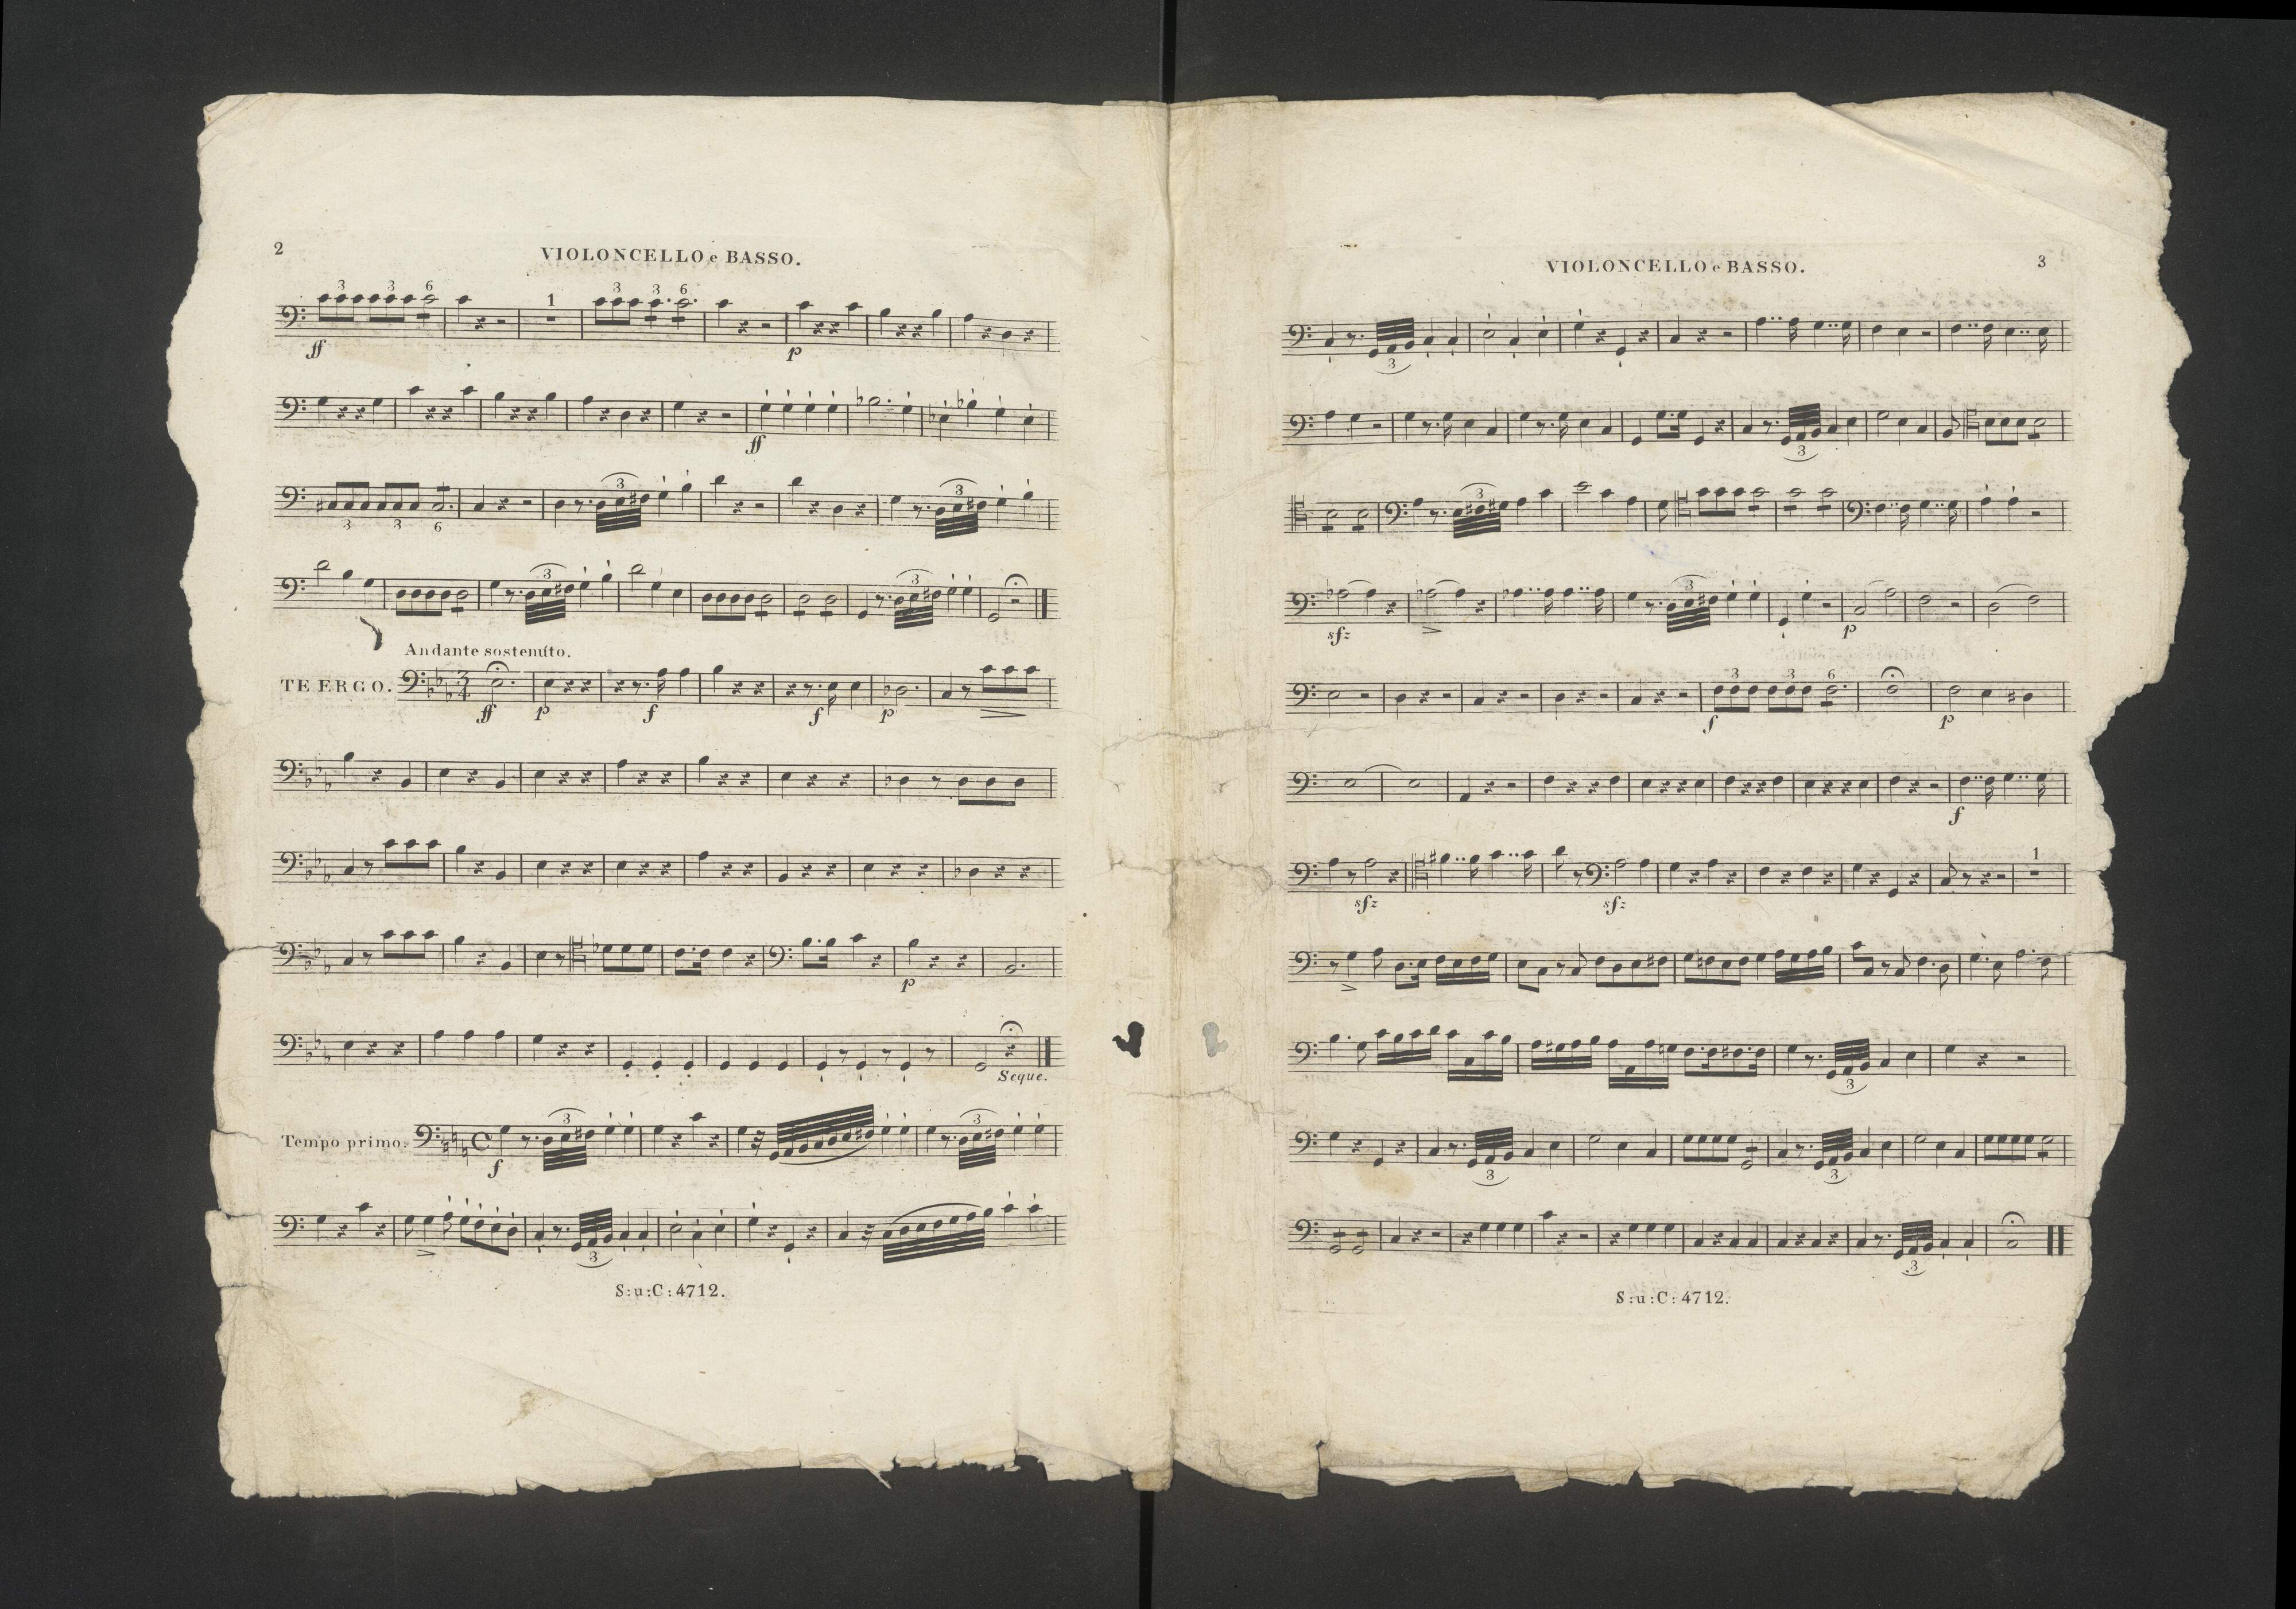 2
VIOLONCELLO e BASSO.
3 3 6 1 3 3 6
ff p
ff
3 3
3 3 6
3 3
Andante sostenuto.
TE ERGO. 3 4
ff p f f p
p
Seque.
3 3
Tempo primo.
f
3
S:u:C:4712.
VIOLONCELLO e BASSO. 3
3
3
3
3
sfz p
3 3 6
f p
f
1
sfz sfz
3
3 3
3
S:u:C:4712.